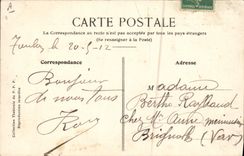 CARTE POSTALE
La Correspondance au recto n'est pas acceptée par tous les pays étrangers
(Se renseigner à la Poste)
Toulon le 20-5-12
Correspondance
Adresse
Bonjour
de nous tous
Madame
Berthe Raybaud
chez Mr Aune menuisier
Brignoles
(Var)